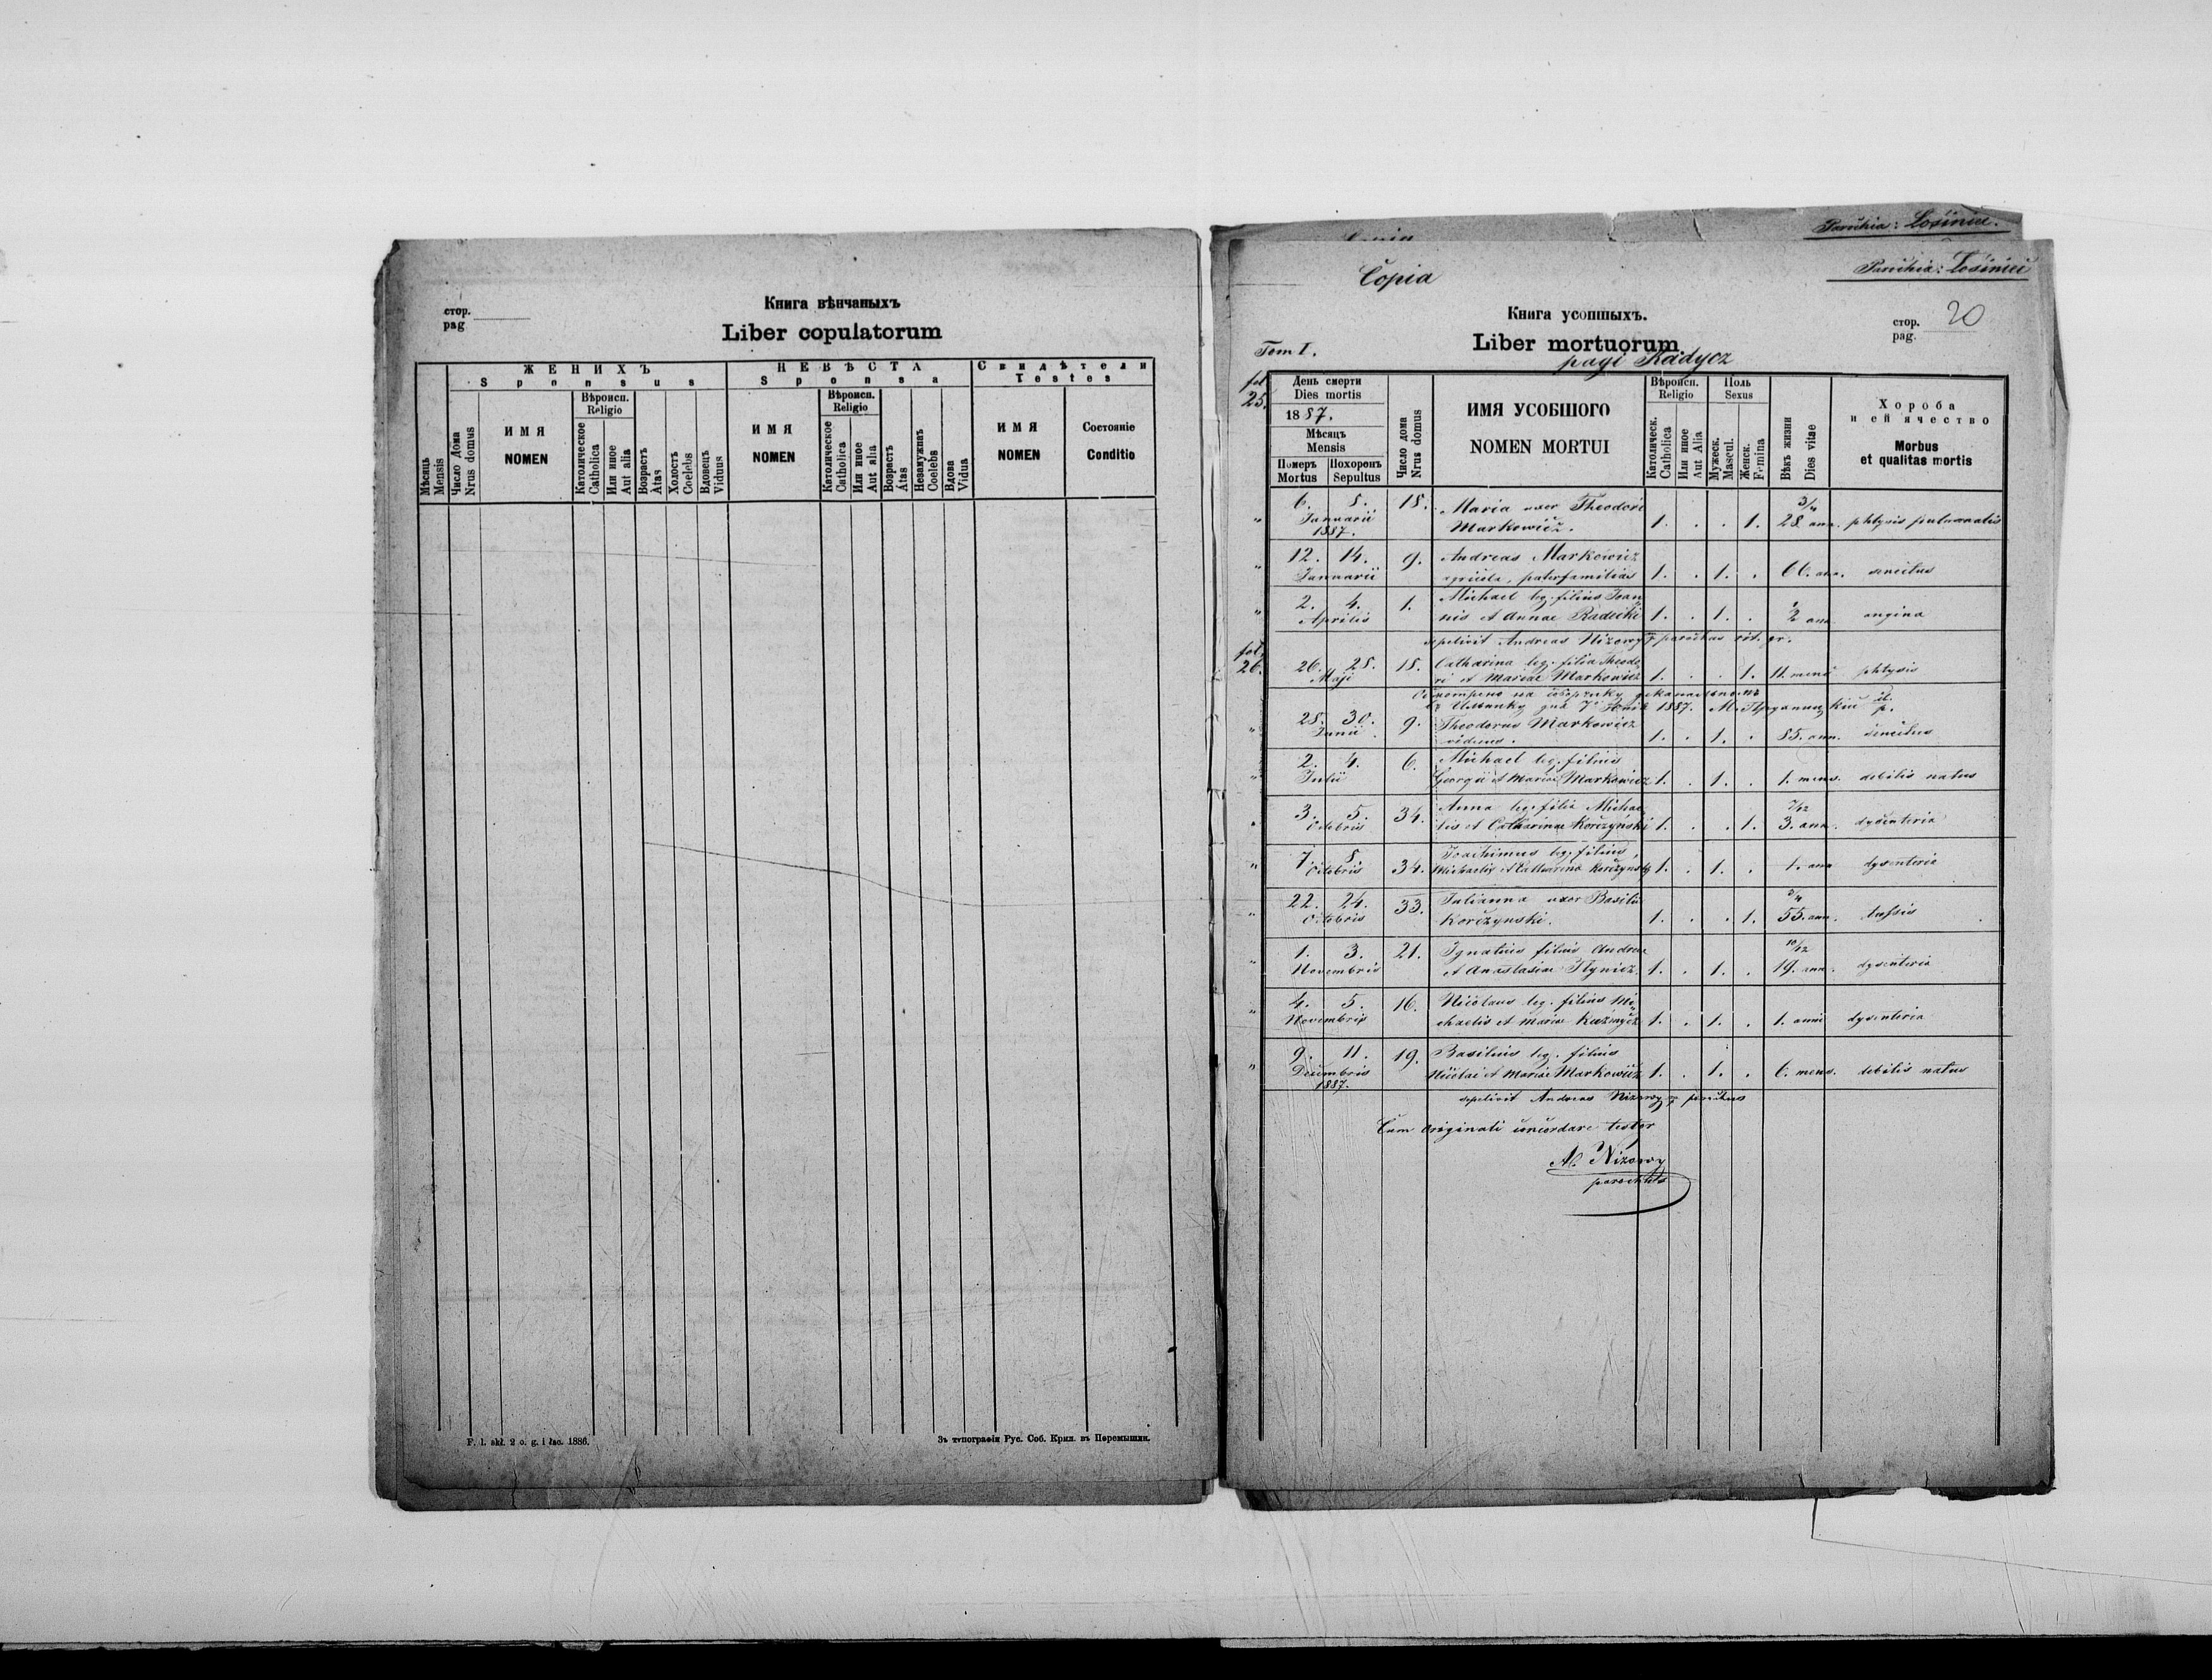 стор.
pag
Книга вѣнчаныхъ
Liber copulatorum
Мѣсяць
Mensis
ЖЕНИХЪ
Sponsus
Число Дома
Nrus domus
ИМЯ
NOMEN
Вѣроисп.
Religio
Католическое
Catholica
Или иное
Aut alia
Возрастъ
Átas
Холостъ
Coelebs
Вдовецъ
Viduus
НЕВѢСТА
Sponsa
ИМЯ
NOMEN
Вѣроисп.
Religio
Католическое
Catholica
Или иное
Aut alia
Возрастъ
Átas
Незамужнаъ
Coelebs
Вдова
Vidua
Свидѣтели
Testes
ИМЯ
NOMEN
Состояніе
Conditio
F. l. skł. 2 o. g. i łac. 1886.
Зъ типографіи Рус. Соб. Крил. въ Перемышли.
Parochia: Łosiniec.
Copia
Parochia: Łosiniec
Книга усопшыхъ.
Liber mortuorum
pagi Radycz
стор.
pag.
20
Tom I.
fol. 25.
День смерти
Dies mortis
1887.
Мѣсяцъ
Mensis
Померъ
Mortus
Похоронъ
Sepultus
Число дома
Nrus domus
ИМЯ УСОБШОГО
NOMEN MORTUI
Вѣроисп.
Religio
Католическ.
Catholica
Или иное
Aut Alia
Поль
Sexus
Мужеск.
Mascul.
Женск.
Femina
Вѣкъ жизни
Dies vitae
Хороба
и ей ячество
Morbus
et qualitas mortis
" 6. 8. 18. Maria uxor Theodori 3/4
Januarii Markowicz. 1. . . 1. 28 ann. phtysis pulmonalis
1887.
" 12. 14. 9. Andreas Markowicz
Januarii agricola, paterfamilias 1. . 1. . 66. ann. senectus
" 2. 4. 1. Michael leg. filius Joan
Aprilis nis et Annae Radecki 1. . 1. . 1/2 ann. angina
sepelivit Andreas Nizowy parochus rit. gr.
fol. 26. 26. 28. 18. Catharina leg. filia Theodo
Maji ri et Mariae Markowicz 1. . . 1. 11. mens phtysis
1887.
" 28. 30. 9. Theodorus Markowicz
Junii viduus. 1. . 1. . 85. ann. senectus
" 2. 4. 6. Michael leg. filius
Julii Georgii et Mariae Markowicz 1. . 1. . 1. mens. debilis natus
" 3. 5. 34. Anna leg. filia Michae 7/12
Octobris lis et Catharinae Korczyński 1. . . 1. 3. ann. dysenteria
" 7. 8. 34. Joachimus leg. filius
Octobris Michaelis et Catharinae Korczyński 1. . 1. . 1. ann dysenteria
" 22. 24. 33. Julianna uxor Basilii 2/4
Octobris Korczynski. 1. . . 1. 55. ann. tussis
" 1. 3. 21. Ignatius filius Andreae 10/12
Novembris et Anastasiae Ilynicz. 1. . 1. . 19. ann. dysenteria
" 4. 5. 16. Nicolaus leg. filius Mi
Novembris chaelis et Mariae Kuźmycz 1. . 1. . 1. anni dysenteria
" 9. 11. 19. Basilius leg. filius
Decembris Nicolai et Mariae Markowicz 1. . 1. . 6. mens. debilis natus
1887.
sepelivit Andreas Nizowy parochus
Cum originali concordare testor
A. Nizowy
parochus